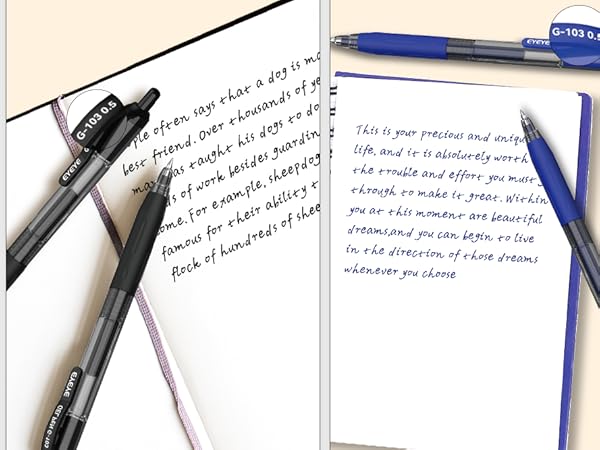 G-103 0.5
EYEYE
ple often says that a dog is mo
best friend. Over thousands of ye
man has taught his dogs to do
ds of work besides guardin
ome. For example, sheepdog
famous for their ability t
flock of hundreds of shee
EYEYE
GEL PEN G-103
G-103 0.5
EYEYE
This is your precious and uniqu
life, and it is absolutely worth
the trouble and effort you must g
through to make it great. Within
you at this moment are beautiful
dreams,and you can begin to live
in the direction of those dreams
whenever you choose